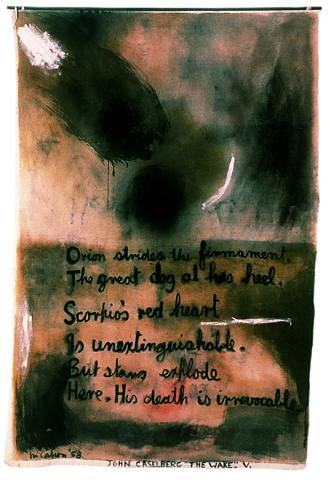 Orion strides the firmament,
The great dog at his heel.
Scorpio's red heart
Is unextinguishable.
But stars explode
Here. His death is irrevocable
McCahon '58.
JOHN CASELBERG "THE WAKE". V.